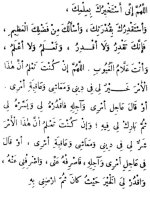 اللَّهُمَّ إِنِّي أَسْتَخِيرُكَ بِعِلْمِكَ ،
وَأَسْتَقْدِرُكَ بِقُدْرَتِكَ ، وَأَسْأَلُكَ مِنْ فَضْلِكَ الْعَظِيمِ ،
فَإِنَّكَ تَقْدِرُ وَلَا أَقْدِرُ ، وَتَعْلَمُ وَلَا أَعْلَمُ ،
وَأَنْتَ عَلَّامُ الْغُيُوبِ . اللَّهُمَّ إِنْ كُنْتَ تَعْلَمُ أَنَّ هَذَا
الْأَمْرَ خَيْرٌ لِي فِي دِينِي وَمَعَاشِي وَعَاقِبَةِ أَمْرِي ،
أَوْ قَالَ عَاجِلِ أَمْرِي وَآجِلِهِ فَاقْدُرْهُ لِي وَيَسِّرْهُ لِي
ثُمَّ بَارِكْ لِي فِيهِ ، وَإِنْ كُنْتَ تَعْلَمُ أَنَّ هَذَا الْأَمْرَ
شَرٌّ لِي فِي دِينِي وَمَعَاشِي وَعَاقِبَةِ أَمْرِي ، أَوْ قَالَ
فِي عَاجِلِ أَمْرِي وَآجِلِهِ ، فَاصْرِفْهُ عَنِّي ، وَاصْرِفْنِي عَنْهُ ،
وَاقْدُرْ لِيَ الْخَيْرَ حَيْثُ كَانَ ثُمَّ ارْضِنِي بِهِ